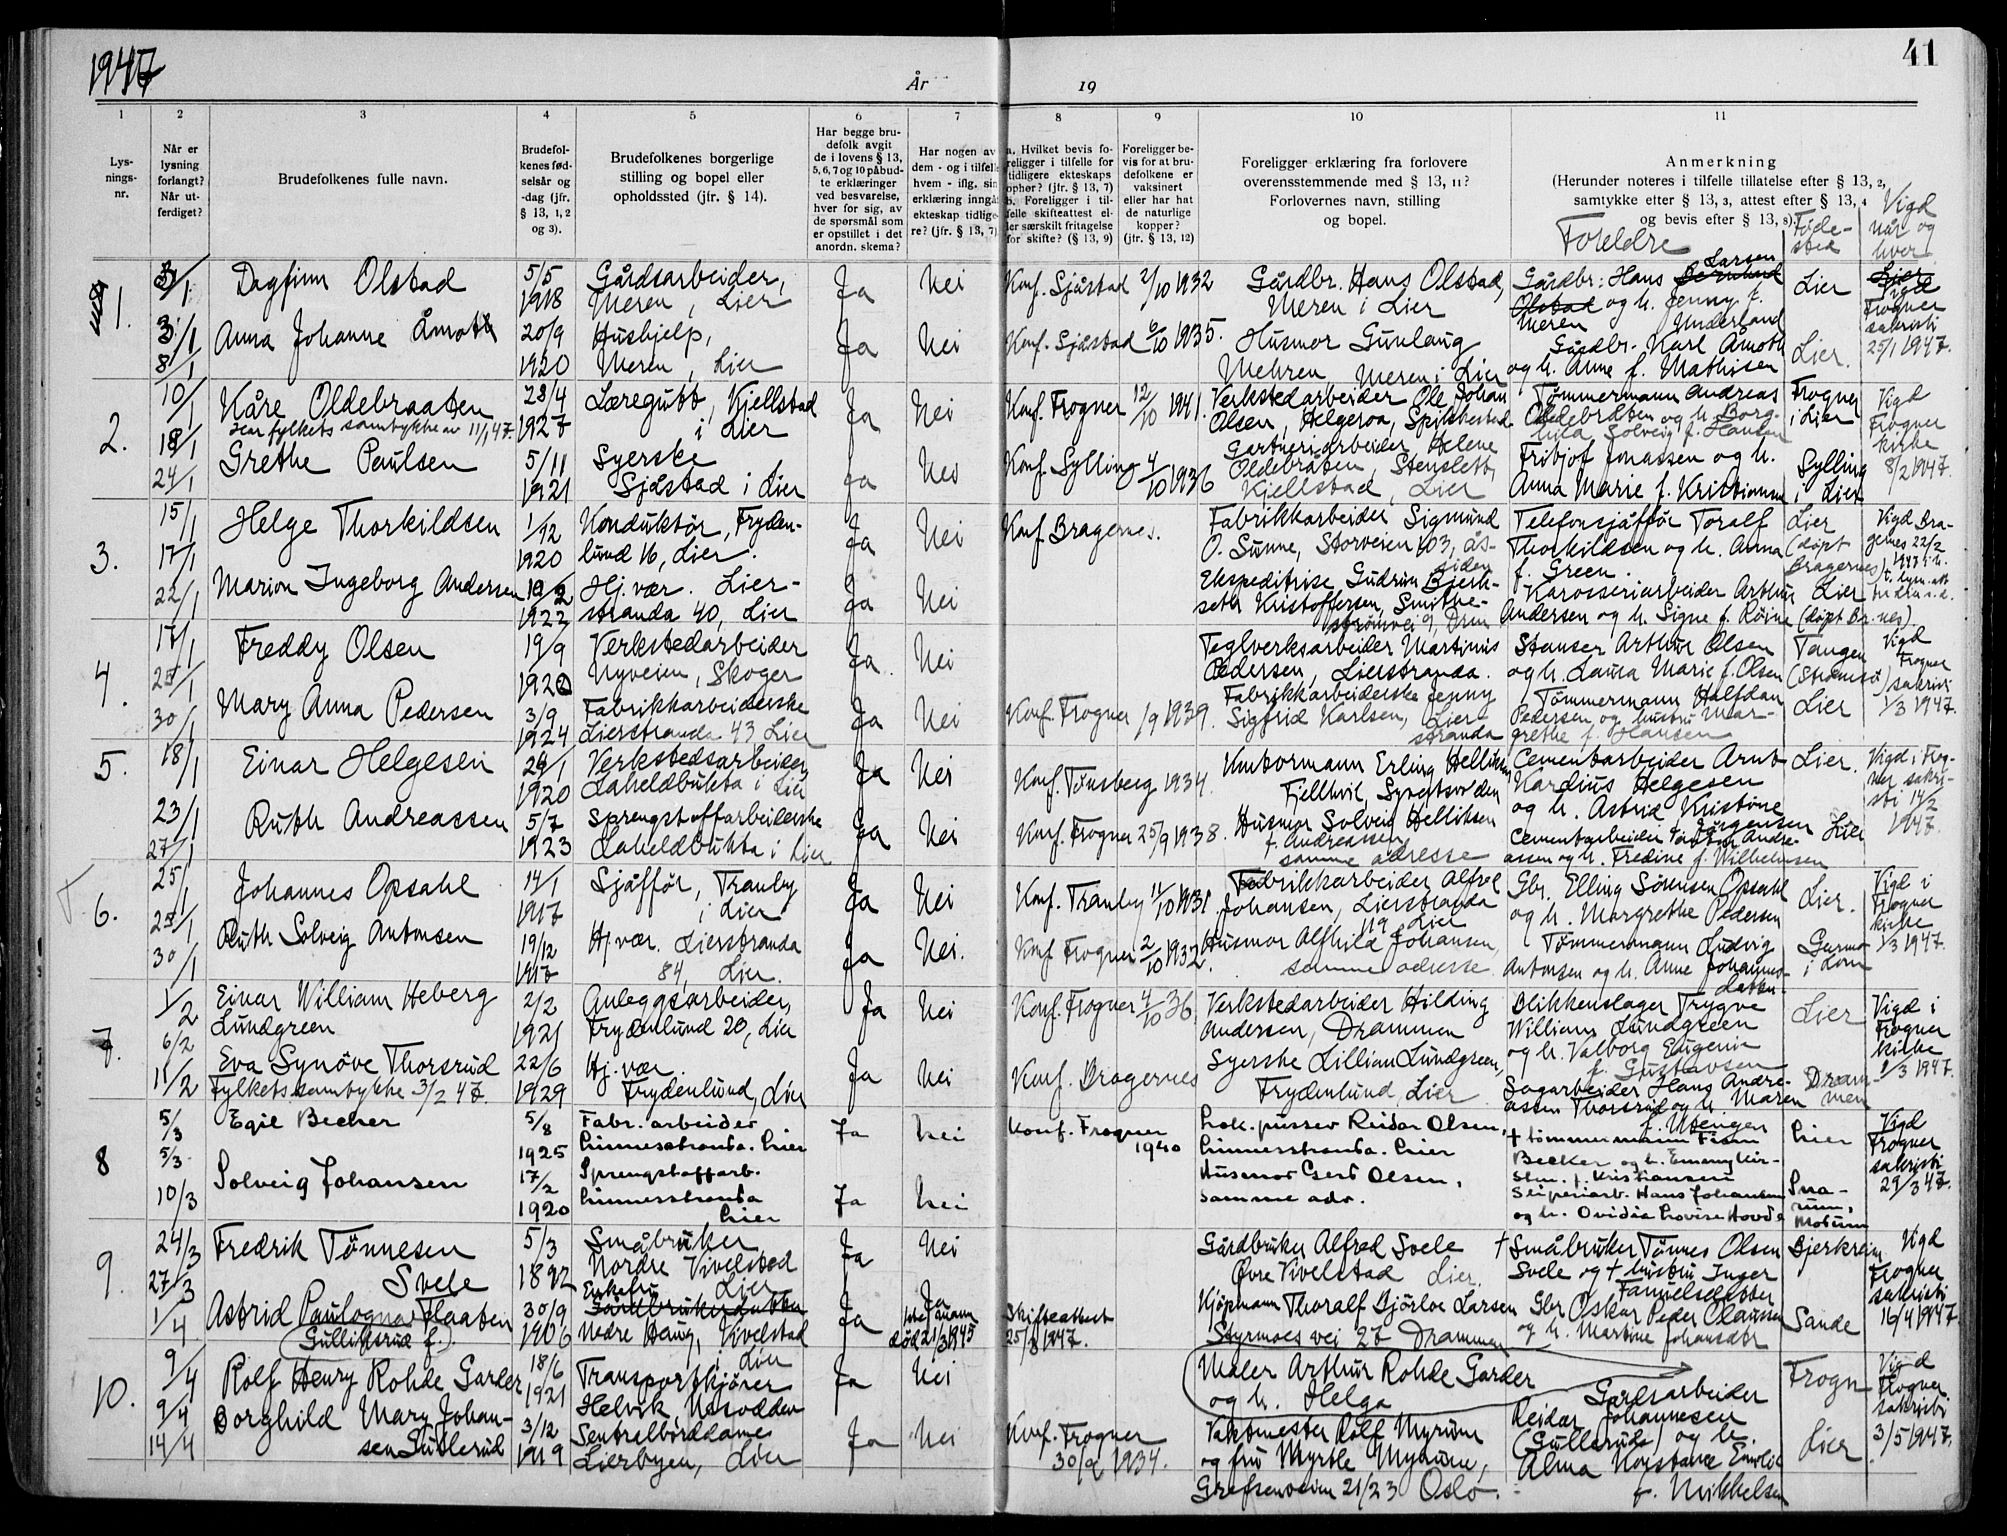 1947
År
19
41
1
2
3
4
5
6
7
8
9
10
11
Lys-
nings-
nr.
Når er
lysning
forlangt?
Når ut-
ferdiget?
Brudefolkenes fulle navn.
Brudefol-
kenes fød-
selsår og
-dag (jfr.
§ 13, 1, 2
og 3).
Brudefolkenes borgerlige
stilling og bopel eller
opholdssted (jfr. § 14).
Har begge bru-
defolk avgit
de i lovens § 13,
5, 6, 7 og 10 påbud-
te erklæringer
ved besvarelse,
hver for sig, av
de spørsmål som
er opstillet i det
anordn. skema?
Har nogen av
dem - og i tilfelle
hvem - iflg. sin
erklæring inngå
ekteskap tidlige-
re? (jfr. § 13, 7)
a. Hvilket bevis fo-
religger i tilfelle for
tidligere ekteskaps
ophør? (jfr. § 13, 7)
b. Foreligger i til-
felle skifteattest el-
ler særskilt fritagelse
for skifte? (§ 13, 9)
Foreligger be-
vis for at bru-
defolkene er
vaksinert
eller har hat
de naturlige
kopper?
(jfr. § 13, 12)
Foreligger erklæring fra forlovere
overensstemmende med § 13, 11?
Forlovernes navn, stilling
og bopel.
Anmerkning
(Herunder noteres i tilfelle tillatelse efter § 13, 2,
samtykke etter § 13, 3, attest efter § 13, 4
og bevis efter § 13, 8).
Foreldre
Føde-
sted
Vigd
når og
hvor
1.
3/1
Dagfinn Olstad
5/5
1918
Gårdsarbeider,
Meren, Lier
Ja
Nei
Konf. Sjåstad 2/10 1932
Gårdbr. Hans Olstad,
Meren i Lier
Gårdbr. Hans Larsen
Olstad og h. Jenny f.
Meren Underland
Lier
Vigd
Frogner
sakristi
25/1 1947.
3/1
8/1
Anna Johanne Åmoth
20/9
1920
Hushjelp,
Meren, Lier
Ja
Nei
Konf. Sjåstad 6/10 1935.
Husmor Gunlaug
Mehren, Meren i Lier
Gårdbr. Karl Åmoth
og h. Anne f. Mathisen
Lier.
2.
10/1
Kåre Oldebraaten
Har fylkets samtykke av 11/1 47.
28/4
1927
Læregutt, Kjellstad
i Lier
Ja
Nei
Konf. Frogner 12/10 1941.
Verkstedarbeider Ole Johan
Olsen, Helgeroa, Spikkestad
Tømmermann Andreas
Oldebråten og h. Borg-
hild Solveig f. Hansen
Frogner
i Lier
Vigd
Frogner
kirke
8/2 1947.
18/1
24/1
Grethe Paulsen
5/11
1921
Syerske
Sjåstad i Lier
Ja
Nei
Konf. Sylling 4/10 1936
Gartneriarbeider Helene
Oldebråten, Stenslett,
Kjellstad, Lier
Fritjof Jonassen og h.
Anna Marie f. Kristiansen
Sylling
i Lier
3.
15/1
Helge Thorkildsen
1/12
1920
Konduktør, Fryden-
lund 16, Lier.
Ja
Nei
Konf. Bragernes.
Fabrikkarbeider Sigmund
O. Sunne, Storveien 103, Ås-
siden
Telefonsjåffør Toralf
Thorkildsen og h. Anna
f. Green.
Lier
(døpt
Bragernes)
Vigd Bra-
gernes 22/2
1947
17/1
22/1
Marion Ingeborg Andersen
1922
Hj. vær. Lier-
stranda 40, Lier
Ja
Nei
Ekspeditrise Gudrun Bjerk-
seth Kristoffersen, Smithe-
strømvei 9, Drm
Karosseriarbeider Arthur
Andersen og h. Signe f. Røine
Lier
(døpt Br.nes).
4.
17/1
Freddy Olsen
19/9
1920
Verkstedarbeider
Nyveien, Skoger
Ja
Nei
Teglverksarbeider Martinius
Pedersen, Lierstranda.
Stanser Arthur Olsen
og h. Laura Marie f. Olsen
Tangen
(Strømsø)
Vigd
Frogner
sakristi
1/3 1947.
25/1
30/1
Mary Anna Pedersen
3/9
1924
Fabrikkarbeiderske
Lierstranda 43, Lier
Ja
Nei
Konf. Frogner 1/9 1939.
Fabrikkarbeiderske Jenny
Sigfrid Karlsen, Lier-
stranda
Tømmermann Halfdan
Pedersen og hustru Mar-
grethe f. Hansen
Lier
5.
18/1
Einar Helgesen
29/1
1920
Verkstedsarbeider
Laheldbukta i Lier
Ja
Nei
Konf. Tønsberg 1934.
Kontormann Erling Helliksen
Fjellhvil,
Cementarbeider Arnt
Kardius Helgesen
og h. Astrid Kristine
Jørgensen
Lier.
Vigd i Frog-
ner sakri-
sti 14/2
1947.
23/1
27/1
Ruth Andreassen
5/7
1923
Sprengstoffarbeiderske
Laheldbukta i Lier
Ja
Nei
Konf. Frogner 25/9 1938.
Husmor Solveig Helliksen
f. Andreassen
samme adresse
Cementarbeider Andre-
assen og h. Fredine f. Wilhelmsen
Lier
6.
25/1
Johannes Opsahl
14/1
1917
Sjåffør, Tranby
i Lier
Ja
Nei
Konf. Tranby 11/10 1931.
Fabrikkarbeider Alfred
Johansen, Lierstranda
119, Lier
Gbr. Elling Sørensen Opsahl
og h. Margrethe Pedersen
Lier.
Vigd i
Frogner
kirke
1/3 1947.
25/1
30/1
Ruth Solveig Antonsen
19/12
1917
Hj. vær. Lierstranda
84, Lier.
Ja
Nei.
Konf. Frogner 2/10 1932.
Husmor Alfhild Johansen,
samme adresse
Tømmermann Ludvig
Antonsen og h. Anne Johannes-
datter
Garmo
i Lom
7.
1/2
Einar William Heberg
Lundgreen
2/2
1921
Anleggsarbeider,
Frydenlund 20, Lier
Ja
Nei
Konf. Frogner 4/10 36
Verkstedarbeider Hilding
Andersen, Drammen
Blikkenslager Trygve
William Lundgreen
og h. Valborg Eugenie
f. Gustavsen
Lier
Vigd i
Frogner
kirke
1/3 1947.
6/2
11/2
Eva Synøve Thorsrud
Fylkets samtykke 3/2 47.
22/6
1929
Hj. vær
Frydenlund, Lier
Ja
Nei
Konf. Bragernes
Syerske Lillian Lundgreen,
Frydenlund, Lier
Sagarbeider Hans Andre-
assen Thorsrud og h. Maren
f. Utengen
Dram-
men
8
5/3
Egil Becker
5/8
1925
Fabr. arbeider
Linnesstranda. Lier
Ja
Nei
Konf. Frogner
1940
Lok. pusser Reidar Olsen,
Linnesstranda. Lier
+ tømmermann Finn
Becker og h. Emmy Kir-
sten f. Kristiansen
Lier
Vigd
Frogner
sakristi
29/3 47.
5/3
10/3
Solveig Johansen
17/2
1920
Sprengstoffarb.
Linnesstranda
Lier
Ja
Nei
Husmor Gerd Olsen,
samme adr.
Sliperiarb. Hans Johansen
og h. Ovidia Lovise Hovde
Sna-
rum,
Modum
9.
24/3
Fredrik Tønnesen
Svele
5/3
1892
Småbruker
Nordre Vivelstad
Lier
Ja
Nei
Gårdbruker Alfred Svele
Øvre Vivelstad Lier.
+ Småbruker Tønnes Olsen
Svele og + hustru Inger
Tanielsdatter
Bjerkreim
Vigd
Frogner
sakristi
16/4 1947.
27/3
1/4
Astrid Paulogna Flaaten
(Gulliksrud f.)
30/9
1906
Enkefru
Gårdbrukerdatter
Nedre Haug, Vivelstad
i Lier
Ja
Ja
1ste mann
død 21/3 1945
Skifteattest
25/3 1947.
Kjøpmann Thoralf Bjørloe Larsen
Styrmoes vei 27 Drammen
Gbr Oskar Peder Olaussen
og h. Martine Johansdtr
Sande
10.
9/4
Rolf Henry Rohde Garder
18/6
1921
Transportkjører
Helvik Nesodden
Ja
Nei
Maler Arthur Rohde Garder
og h. Helga
Frogn
Vigd
Frogner
sakristi
3/5 1947.
9/4
14/4
Borghild Mary Johan-
sen Gullerud
3/12
1919
Sentralborddame
Lierbyen, Lier
Ja
Nei
Konf. Frogner
30/9 1934.
Vaktmester Rolf Myrum
og fru Myrtle Myrum,
Grefsenveien 21/23 Oslo.
Gårdsarbeider
Reidar Johannesen
(Gullerud) og h.
Alma Konstance Emilie
f. Mikkelsen
Lier